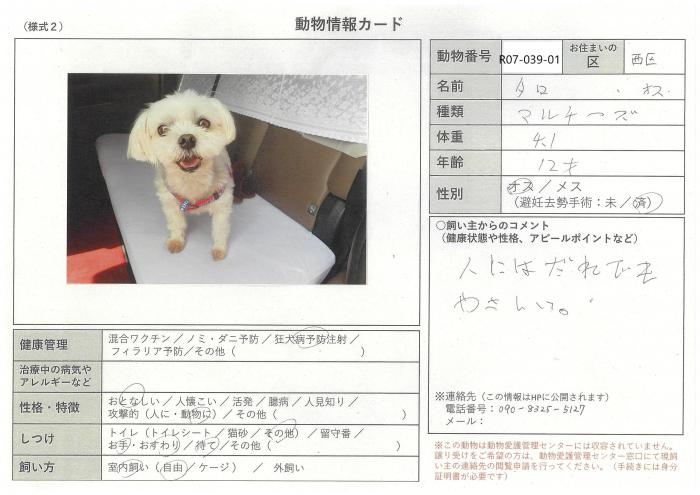 （様式２）
動物情報カード
動物番号 R07-039-01 お住まいの区 西区
名前 タロ ・オス
種類 マルチーズ
体重 4.1
年齢 12才
性別 オス／メス
（避妊去勢手術：未／済）
○飼い主からのコメント
（健康状態や性格、アピールポイントなど）
人にはだれでも
やさしい。
※連絡先（この情報はHPに公開されます）
電話番号：090-8325-5127
メール：
※この動物は動物愛護管理センターには収容されていません。
譲り受けをご希望の方は、動物愛護管理センター窓口にて現飼
い主の連絡先の閲覧申請を行ってください。（手続きには身分
証明書が必要です）
健康管理 混合ワクチン／ノミ・ダニ予防／狂犬病予防注射／
フィラリア予防／その他（ ）
治療中の病気や
アレルギーなど
性格・特徴 おとなしい／人懐こい／活発／臆病／人見知り／
攻撃的（人に・動物に）／その他（ ）
しつけ トイレ（トイレシート／猫砂／その他）／留守番／
お手・おすわり／待て／その他（ ）
飼い方 室内飼い（自由／ケージ） ／ 外飼い